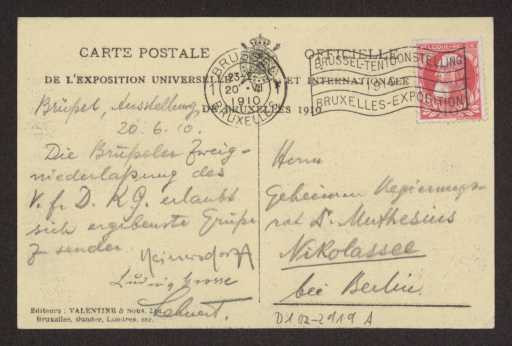 CARTE POSTALE OFFICIELLE
DE L'EXPOSITION UNIVERSELLE ET INTERNATIONALE
DE BRUXELLES 1910
BRUSSEL
1
20 VI
1910
BRUXELLES
BRUSSEL-TENTOONSTELLING
BRUXELLES-EXPOSITION
Brüßel, Ausstellung,
20.6.10.
Die Brüßeler Zweig-
niederlaßung des
V. f. D. K G. erlaubt
sich ergebenste Grüße
z. senden.
Ludwig Grosse
Herrn
Geheimen Regierungs-
rat Dr. Muthesius
Nikolassee
bei Berlin
Editeurs : VALENTINE & Sons,
Bruxelles, Dundee, Londres, etc.
D 102-2919 A